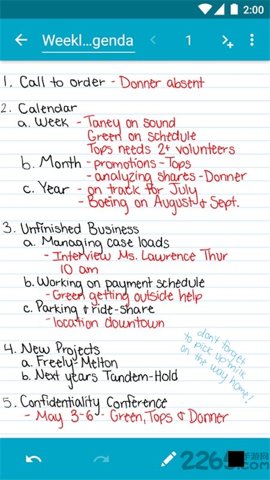 2:00
Weekl...genda
1
1. Call to order - Donner absent
2. Calendar
a. Week - Taney on sound
Green on schedule
Tops needs 2+ volunteers
b. Month - promotions - Tops
- analyzing shares - Donner
c. Year - on track for July
- Boeing on August & Sept.
3. Unfinished Business
a. Managing case loads
- Interview Ms. Lawrence Thur
10 am
b. Working on payment schedule
- Green getting outside help
c. Parking & ride-share
- location downtown
don't forget
to pick up milk
on the way home!
4. New Projects
a. Freely-Melton
b. Next years Tandem-Hold
5. Confidentiality Conference
- May 3-6 - Green, Tops & Donner